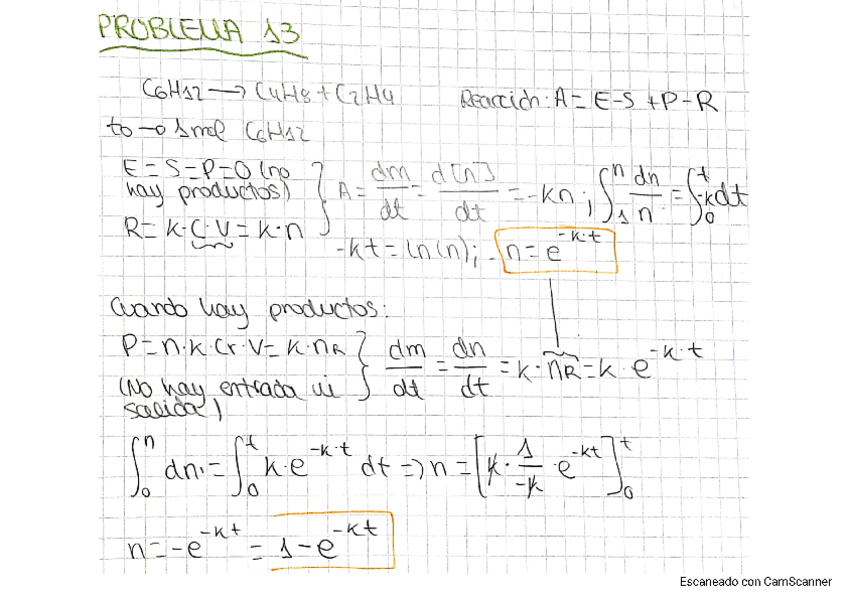 PROBLEMA 13
C6H12 → C4H8 + C2H4
Reacción: A = E-S + P-R
to → 1 mol C6H12
E = S = P = 0 (no
hay productos)
R = k·C·V = k·n
A = dm/dt = d[n]/dt = -kn ; ∫₁ⁿ dn/n = ∫₀ᵗ -kdt
-kt = ln(n); n = e^-k·t
Cuando hay productos:
P = n·k·Cr·V = k·nR
(No hay entrada ni
salida)
dm/dt = dn/dt = k·nR = k·e^-k·t
∫₀ⁿ dn = ∫₀ᵗ k·e^-k·t dt => n = [k · 1/-k · e^-kt]₀ᵗ
n = -e^-kt = 1-e^-kt
Escaneado con CamScanner